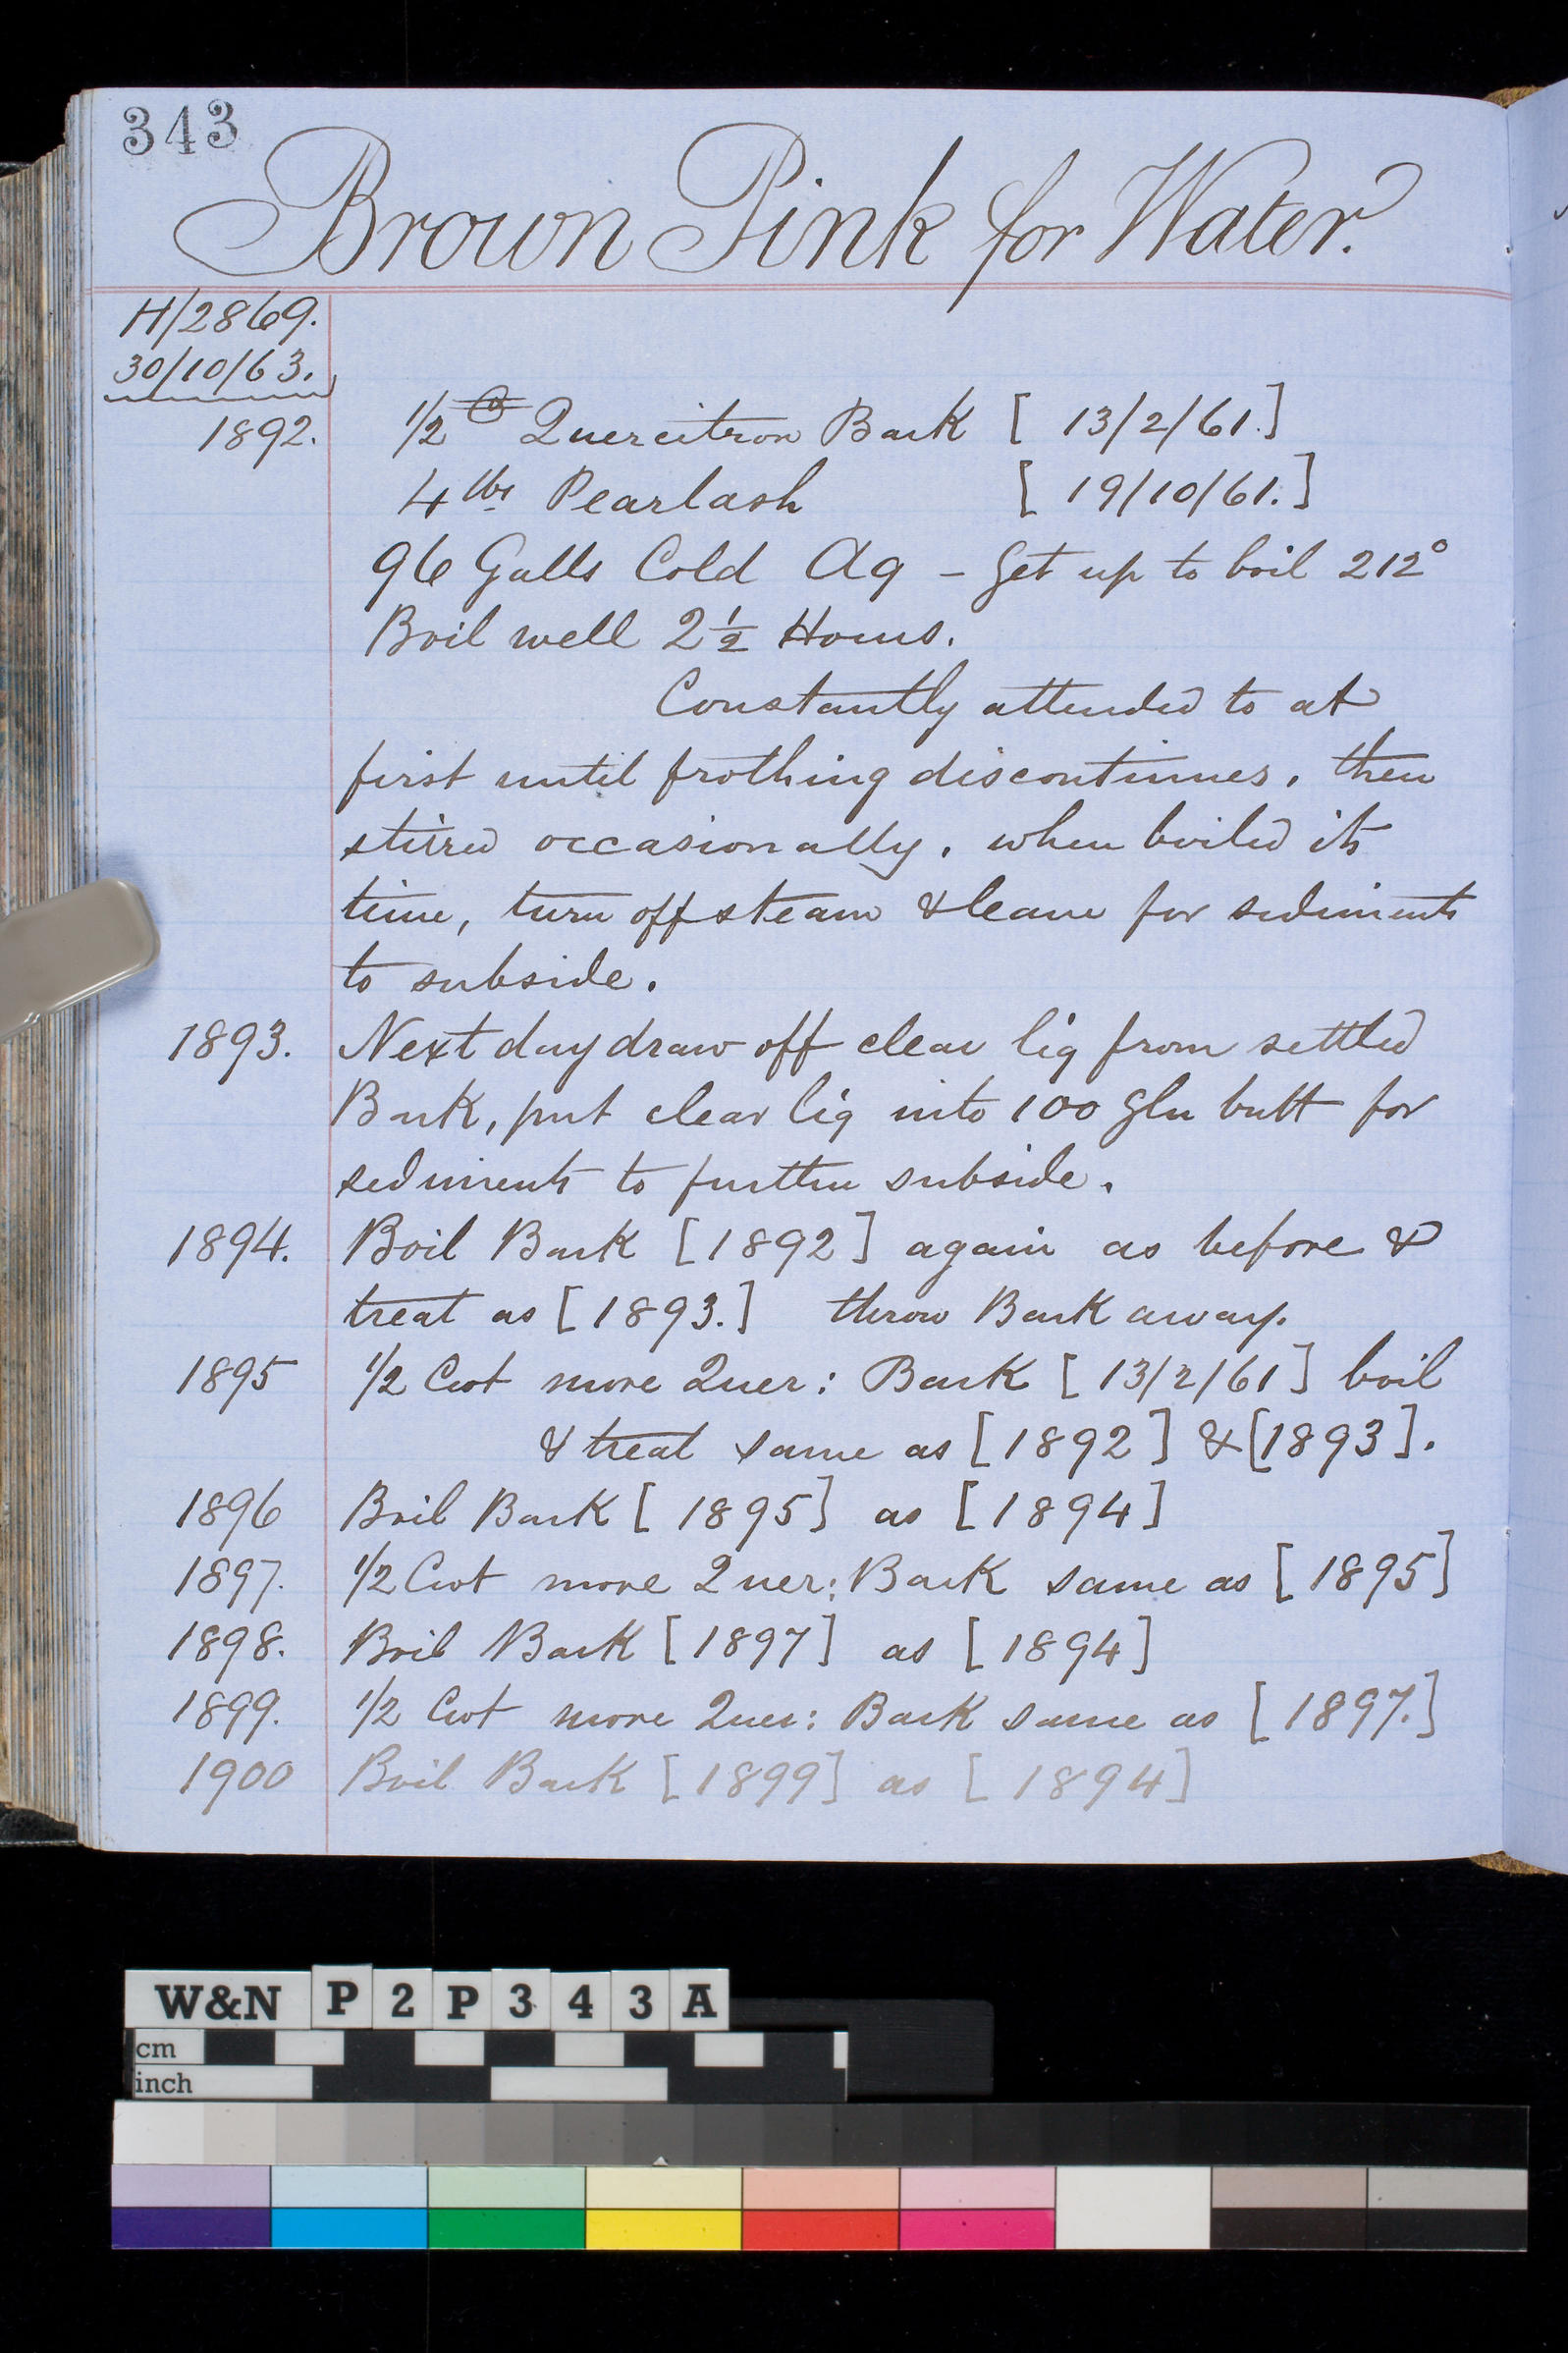 343
Brown Pink for Water.
H/2869.
30/10/63.
1892. 1/2 C Quercitron Bark [ 13/2/61.]
4 lbs Pearlash [ 19/10/61.]
96 Galls Cold Aq - Get up to boil 212°
Boil well 2 1/2 Hours.
Constantly attended to at
first until frothing discontinues, then
stirred occasionally, when boiled its
time, turn off steam & leave for sediments
to subside.
1893. Next day draw off clear liq from settled
Bark, put clear liq into 100 Gln butt for
sediments to further subside.
1894. Boil Bark [1892] again as before &
treat as [1893.] throw Bark away.
1895 1/2 Cwt more Quer: Bark [ 13/2/61 ] boil
& treat same as [1892] & [1893].
1896 Boil Bark [ 1895] as [1894]
1897. 1/2 Cwt more Quer: Bark same as [ 1895]
1898. Boil Bark [1897] as [1894]
1899. 1/2 Cwt more Quer: Bark same as [1897.]
1900 Boil Bark [1899] as [ 1894]
W&N P2P343A
cm
inch